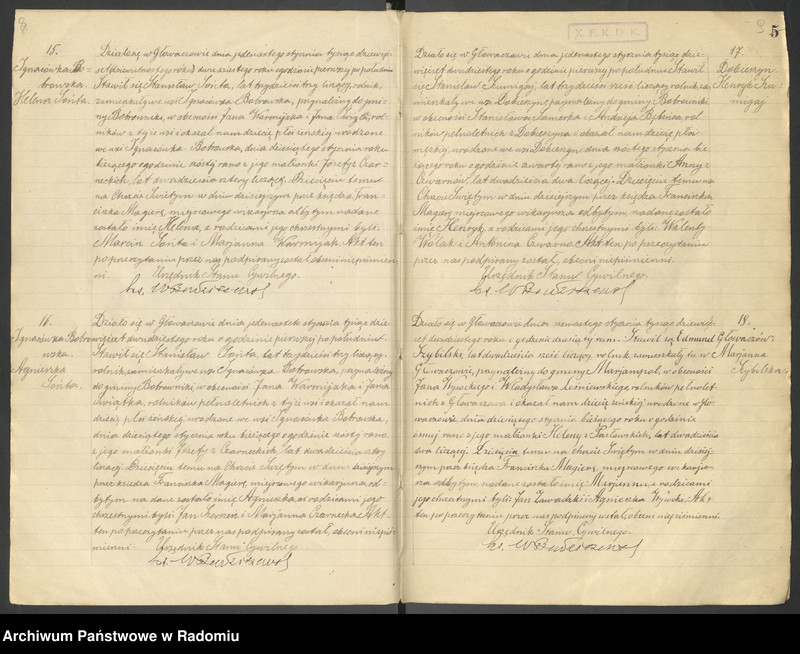 8
15.
Ignasówka Bo-
trowska.
Helena Sońta.
Działo się w Głowaczowie dnia jedenastego stycznia tysiąc dziewięć-
set dwudziestego roku o godzinie pierwszej po południu
Stawił się Stanisław Sońta, lat trzydzieści trzy liczący, rolnik,
zamieszkały we wsi Ignasówka Botrowska, przynależny do gmi-
ny Botrowniki, w obecności Jana Karmijaka i Jana rol-
ników z tejże wsi i okazał nam dziecię płci żeńskiej urodzone
we wsi Ignasówka Botrowska, dnia dziesiątego stycznia roku
bieżącego o godzinie szóstej rano z jego małżonki Józefy z Czar-
neckich, lat dwadzieścia cztery liczącej. Dziecięciu temu
na Chrzcie Świętym w dniu dzisiejszym przez księdza Fran-
ciszka Magierę, miejscowego wikarjusza odbytym nadane
zostało imię Helena, a rodzicami jego chrzestnymi byli:
Marcin Sońta i Marjanna Karmijak Akt ten
po przeczytaniu przez nas podpisany został, obecni niepiśmien-
ni. Urzędnik Stanu Cywilnego.
ks.
16.
Ignasówka Botro-
wska.
Agnieszka
Sońta.
Działo się w Głowaczowie dnia jedenastego stycznia tysiąc dzie-
więćset dwudziestego roku o godzinie pierwszej po południu
Stawił się Stanisław Sońta, lat trzydzieści trzy liczący,
rolnik zamieszkały we wsi Ignasówka Botrowska, przynależny
do gminy Botrowniki w obecności Jana Karmijaka i Jana
rolników pełnoletnich z tejże wsi i okazał nam
dziecię płci żeńskiej urodzone we wsi Ignasówka Botrowska,
dnia dziesiątego stycznia roku bieżącego o godzinie szóstej rano
z jego małżonki Józefy z Czarneckich, lat dwadzieścia cztery
liczącej. Dziecięciu temu na Chrzcie Świętym w dniu dzisiejszym
przez księdza Franciszka Magierę, miejscowego wikarjusza od-
bytym nadane zostało imię Agnieszka, a rodzicami jego
chrzestnymi byli: Jan i Marjanna Czarnecka Akt
ten po przeczytaniu przez nas podpisany został, obecni niepiś-
mienni. Urzędnik Stanu Cywilnego.
ks.
X.F.K.D.K.
5
17.
Dobieszyn
Henryk
Działo się w Głowaczowie dnia jedenastego stycznia tysiąc dzie-
więćset dwudziestego roku o godzinie pierwszej po południu Stawił
się Stanisław lat trzydzieści sześć liczący, rolnik za-
mieszkały we wsi Dobieszyn przynależny do gminy Botrowniki
w obecności Stanisława i Andrzeja rol-
ników pełnoletnich z Dobieszyna i okazał nam dziecię płci
męskiej, urodzone we wsi Dobieszyn dnia stycznia bie-
żącego roku o godzinie czwartej rano z jego małżonki z
lat dwadzieścia dwa liczącej. Dziecięciu temu na
Chrzcie Świętym w dniu dzisiejszym przez księdza Franciszka
Magierę miejscowego wikarjusza odbytym, nadane zostało
imię Henryk, a rodzicami jego chrzestnymi byli: Walenty
Wólak i Antonina Akt ten po przeczytaniu
przez nas podpisany został, obecni niepiśmienni.
Urzędnik Stanu Cywilnego.
ks.
18.
Głowaczów.
Marjanna
Szybilska.
Działo się w Głowaczowie dnia stycznia tysiąc dziewięć-
set dwudziestego roku o godzinie dziesiątej rano. Stawił się Edmund
Szybilski, lat dwadzieścia sześć liczący, rolnik zamieszkały tu w
Głowaczowie, przynależny do gminy Marjampol, w obecności
Jana i Władysława Leśniewskiego, rolników pełnolet-
nich z Głowaczowa i okazał nam dziecię żeńskiej urodzone w Gło-
waczowie dnia dziewiątego stycznia bieżącego roku o godzinie
ósmej rano z jego małżonki Heleny z Pasławskich, lat dwadzieścia
dwa liczącej. Dziecięciu temu na chrzcie Świętym w dniu dzisiej-
szym przez księdza Franciszka Magierę, miejscowego wikarjus-
za odbytym nadane zostało imię Marjanna, a rodzicami
jego chrzestnymi byli: Jan Zawadzki i Agnieszka Akt
ten po przeczytaniu przez nas podpisany został, obecni niepiśmienni.
Urzędnik Stanu Cywilnego.
ks.
Archiwum Państwowe w Radomiu